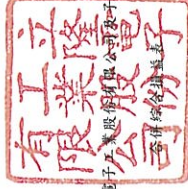 立隆電子
工業股份
有限公司
電子工業股份有限公司及子
合併綜合損益表